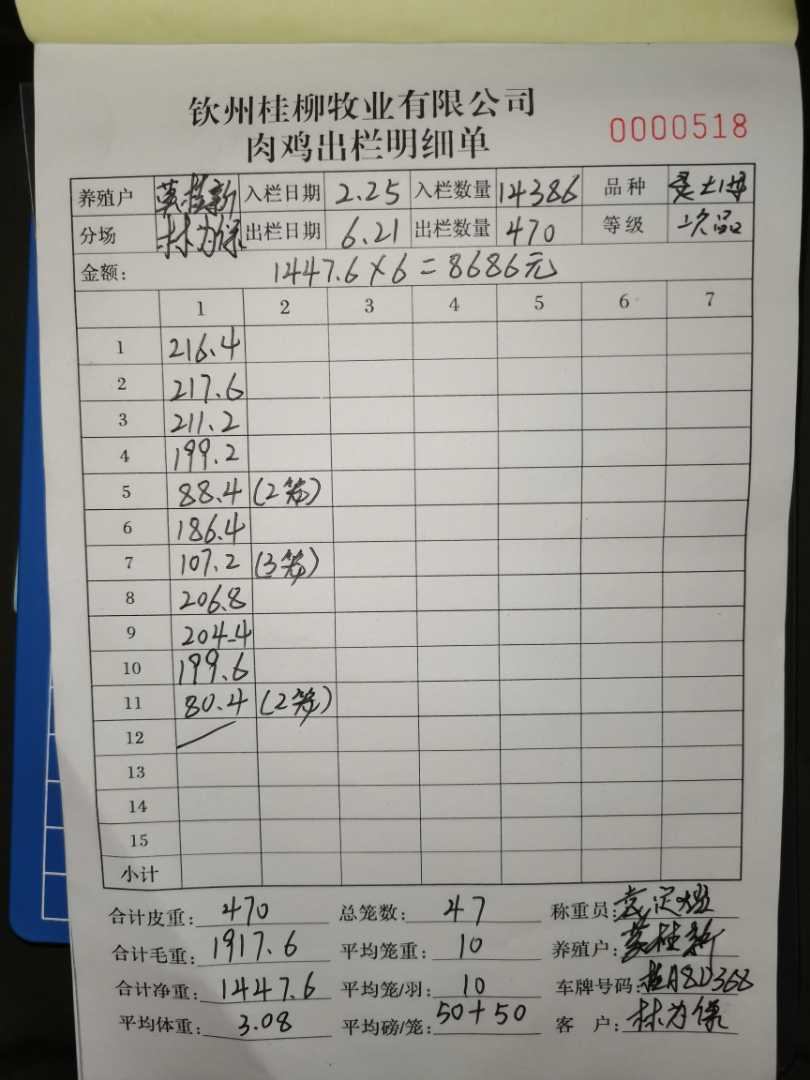 钦州桂柳牧业有限公司
肉鸡出栏明细单
0000518
养殖户 莫桂新 入栏日期 2.25 入栏数量 14386 品种
分场 林为保 出栏日期 6.21 出栏数量 470 等级 次品
金额: 1447.6×6=8686元
1 2 3 4 5 6 7
1 216.4
2 217.6
3 211.2
4 199.2
5 88.4 (2笼)
6 186.4
7 107.2 (3笼)
8 206.8
9 204.4
10 199.6
11 80.4 (2笼)
12
13
14
15
小计
合计皮重: 470 总笼数: 47 称重员:
合计毛重: 1917.6 平均笼重: 10 养殖户: 莫桂新
合计净重: 1447.6 平均笼/羽: 10 车牌号码: 桂A8D368
平均体重: 3.08 平均磅/笼: 50+50 客 户: 林为保